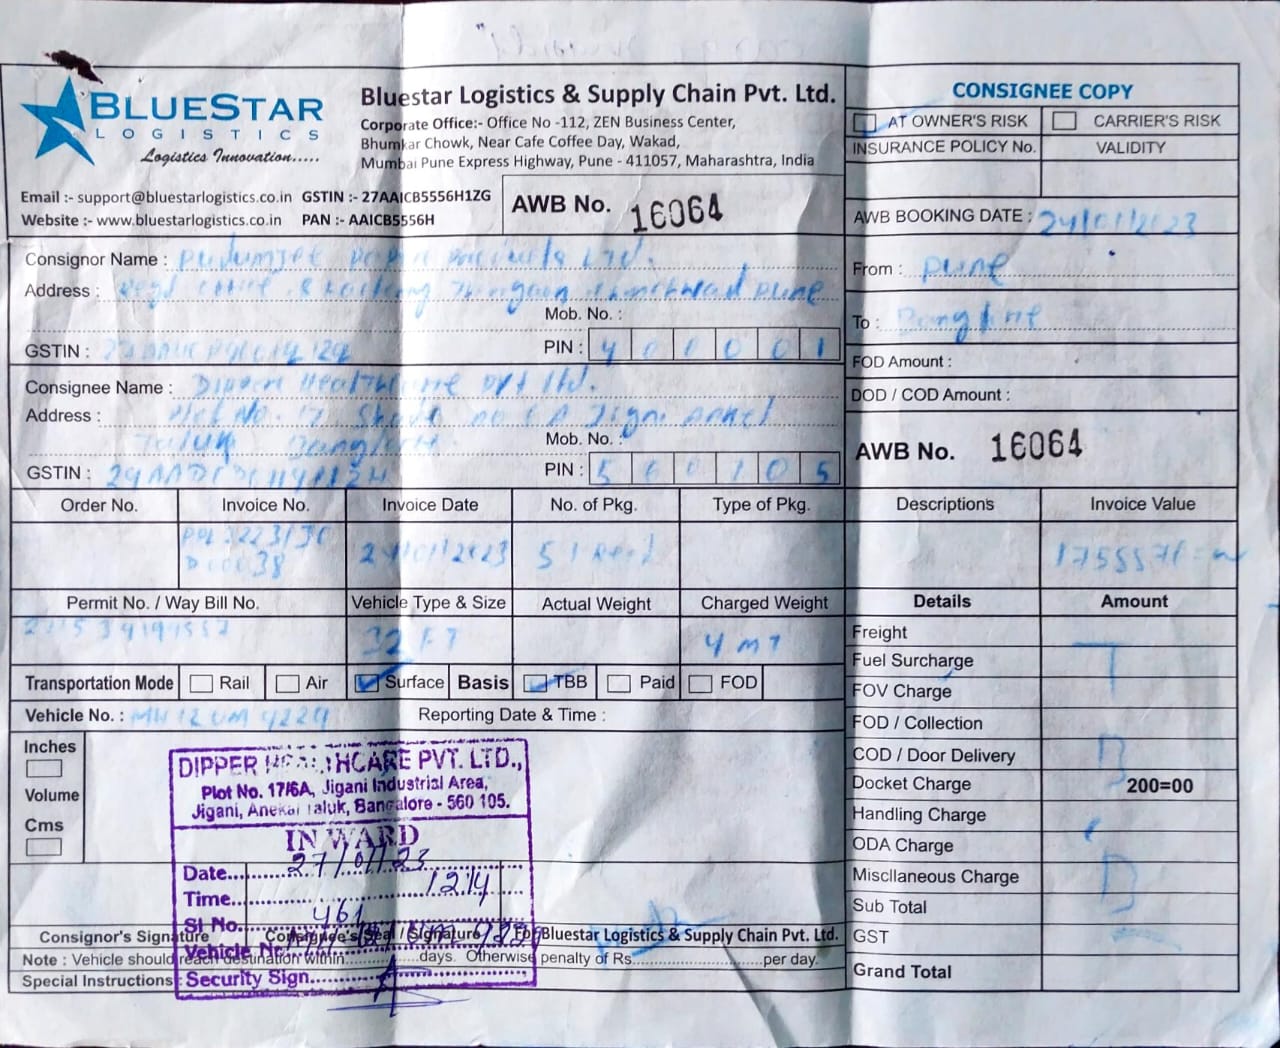 BLUESTAR
LOGISTICS
Logistics Innovation.....
Email :- support@bluestarlogistics.co.in GSTIN :- 27AAICB5556H1ZG
Website :- www.bluestarlogistics.co.in PAN :- AAICB5556H
Bluestar Logistics & Supply Chain Pvt. Ltd.
Corporate Office:- Office No -112, ZEN Business Center,
Bhumkar Chowk, Near Cafe Coffee Day, Wakad,
Mumbai Pune Express Highway, Pune - 411057, Maharashtra, India
AWB No. 16064
CONSIGNEE COPY
AT OWNER'S RISK CARRIER'S RISK
INSURANCE POLICY No. VALIDITY
AWB BOOKING DATE : 24/01/2023
From : Pune
To : Banglore
FOD Amount :
DOD / COD Amount :
AWB No. 16064
Consignor Name : Pudumjee Paper Products Ltd.
Address : Regd Office & Factory Thergaon Chinchwad Pune
Mob. No. :
GSTIN :
PIN : 4 0 0 0 0 1
Consignee Name : Dipper Healthcare Pvt Ltd.
Address : Plot No. 17 Jigni Anekel
Taluk Banglore
Mob. No. :
GSTIN :
PIN : 5 6 0 1 0 5
Order No. Invoice No. Invoice Date No. of Pkg. Type of Pkg. Descriptions Invoice Value
24/01/2023 51
Permit No. / Way Bill No. Vehicle Type & Size Actual Weight Charged Weight
32 FT 4 MT
Transportation Mode Rail Air Surface Basis TBB Paid FOD
Vehicle No. : MH 12 UM 9229 Reporting Date & Time :
Inches
Volume
Cms
Details Amount
Freight
Fuel Surcharge
FOV Charge
FOD / Collection
COD / Door Delivery
Docket Charge 200=00
Handling Charge
ODA Charge
Miscllaneous Charge
Sub Total
GST
Grand Total
DIPPER HEALTHCARE PVT. LTD.,
Plot No. 17/6A, Jigani Industrial Area,
Jigani, Anekal Taluk, Bangalore - 560 105.
IN WARD
Date... 27/01/23
Time... 1214
Sl No... 461
Vehicle Nr
Security Sign...
Consignor's Signature Consignee's Seal / Signature For Bluestar Logistics & Supply Chain Pvt. Ltd.
Note : Vehicle should reach destination within..........days. Otherwise penalty of Rs..........per day.
Special Instructions :